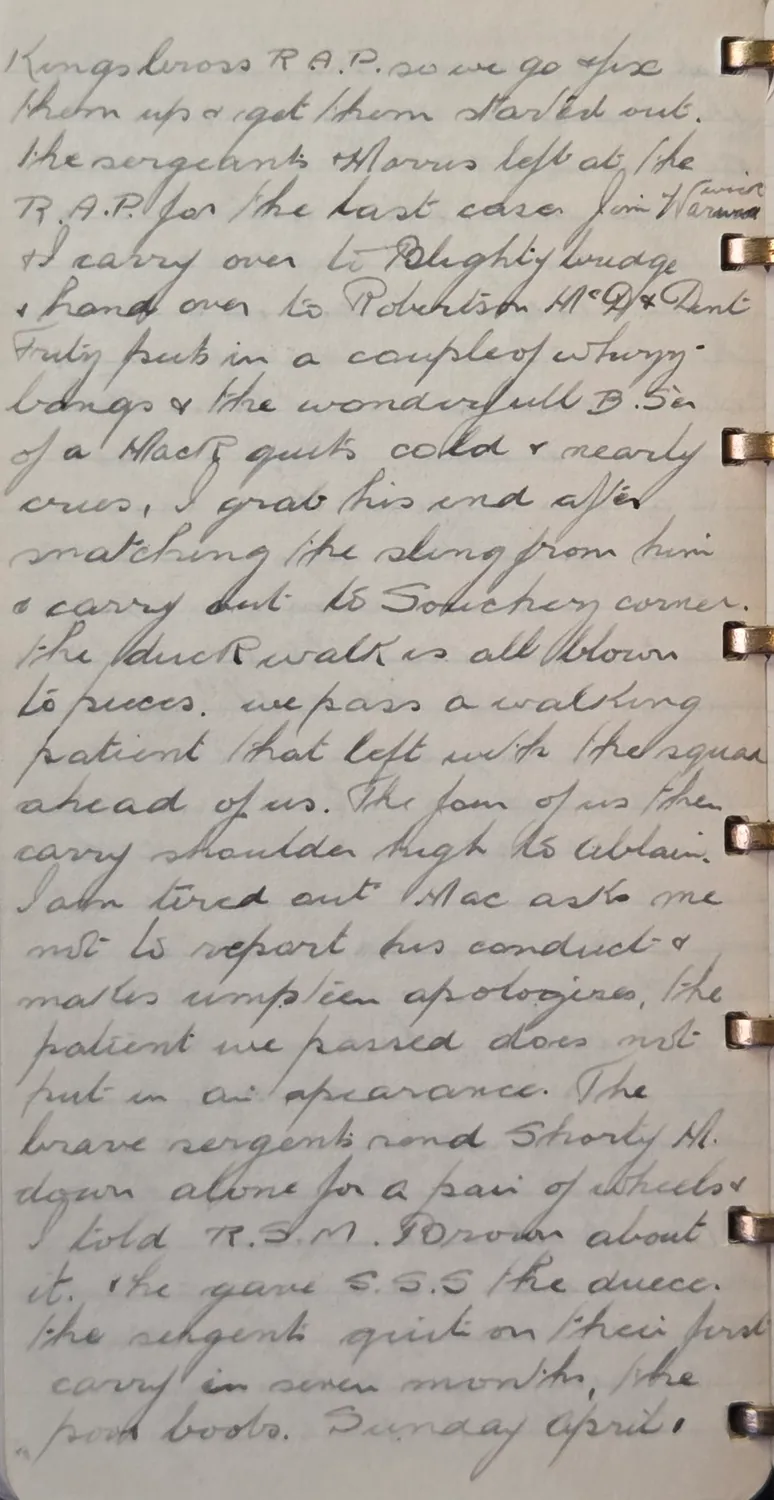 Kings Cross R.A.P. so we go & fix
them up & get them started out.
the sergeants & Morris left at the
R.A.P. for the last case Jim Warwick
& I carry over to Blighty bridge
& hand over to Robertson McD & Dent
Fritz puts in a couple of whizz-
bangs & the wonderfull B. Ser
of a MacR quits cold & nearly
cries, I grab his end after
snatching the sling from him
& carry out to Souchez corner.
the duck walk is all blown
to pieces. we pass a walking
patient that left with the squad
ahead of us. The four of us then
carry shoulder high to Ablain.
I am tired out Mac asks me
not to report his conduct &
makes umpteen apologizes, the
patient we passed does not
put in an apearance. The
brave sergents send Shorty M.
down alone for a pair of wheels &
I told R.S.M. Brown about
it. & he gave S.S.S the duece.
the sergents quit on their first
carry in seven months, the
poor boobs. Sunday April 1